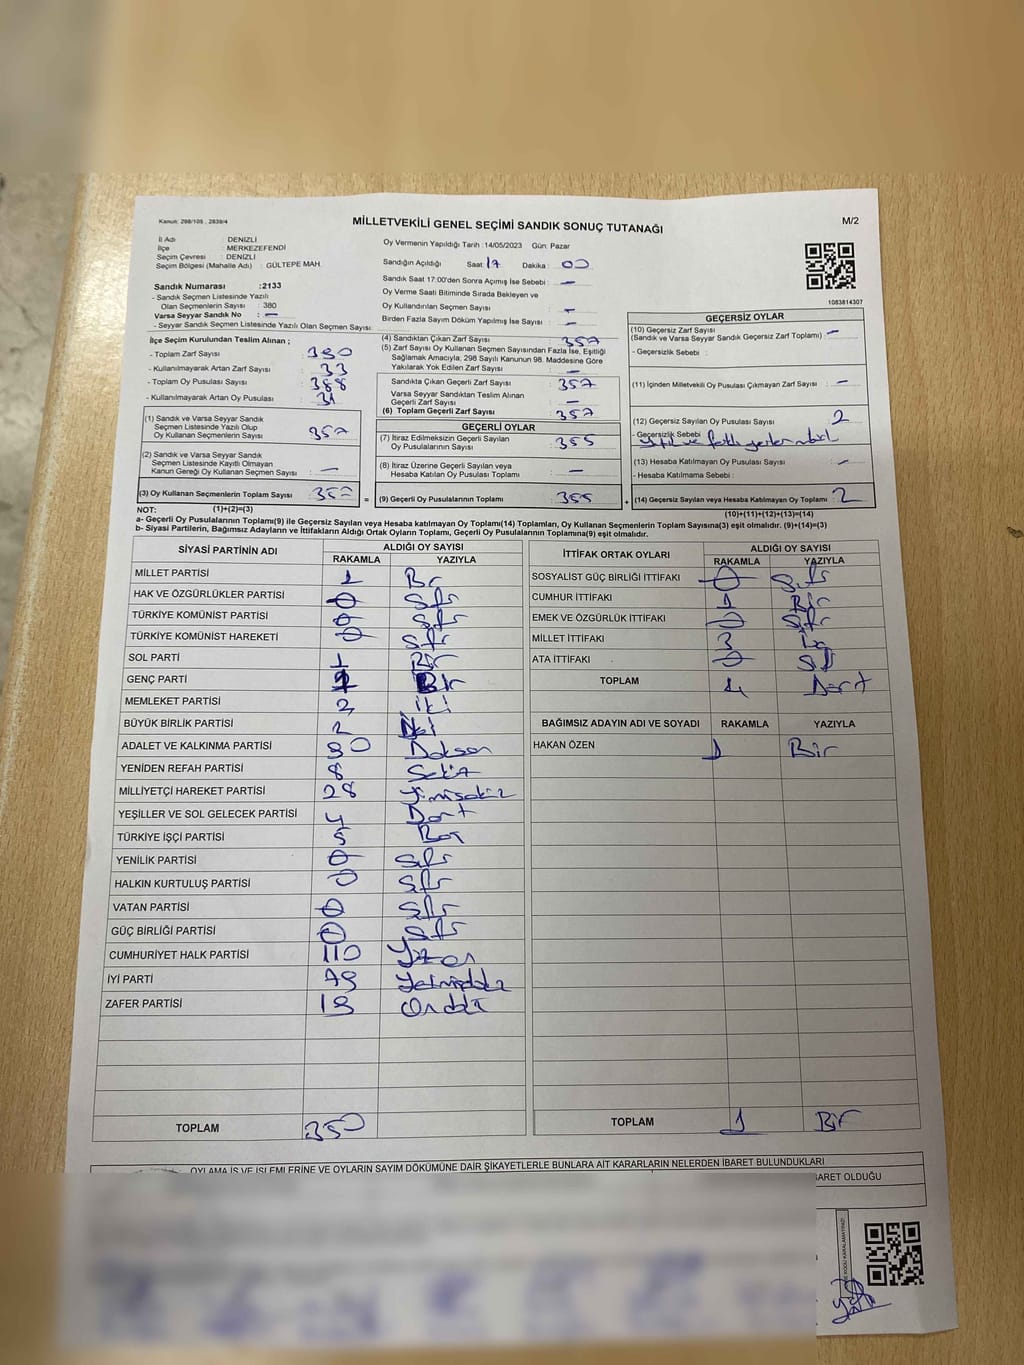 Kanun: 298/105 , 2839/4
MİLLETVEKİLİ GENEL SEÇİMİ SANDIK SONUÇ TUTANAĞI
M/2
İl Adı : DENİZLİ
İlçe : MERKEZEFENDİ
Seçim Çevresi : DENİZLİ
Seçim Bölgesi (Mahalle Adı) : GÜLTEPE MAH.
Sandık Numarası :2133
- Sandık Seçmen Listesinde Yazılı
Olan Seçmenlerin Sayısı : 380
Varsa Seyyar Sandık No : -
- Seyyar Sandık Seçmen Listesinde Yazılı Olan Seçmen Sayısı:
Oy Vermenin Yapıldığı Tarih :14/05/2023 Gün: Pazar
Sandığın Açıldığı Saat: 17 Dakika : 00
Sandık Saat 17:00'den Sonra Açımış İse Sebebi : -
Oy Verme Saati Bitiminde Sırada Bekleyen ve
Oy Kullandırılan Seçmen Sayısı : -
Birden Fazla Sayım Döküm Yapılmış İse Sayısı : -
1083814307
İlçe Seçim Kurulundan Teslim Alınan ;
- Toplam Zarf Sayısı : 390
- Kullanılmayarak Artan Zarf Sayısı : 33
- Toplam Oy Pusulası Sayısı : 388
- Kullanılmayarak Artan Oy Pusulası : 31
(1) Sandık ve Varsa Seyyar Sandık
Seçmen Listesinde Yazılı Olup
Oy Kullanan Seçmenlerin Sayısı : 357
(2) Sandık ve Varsa Seyyar Sandık
Seçmen Listesinde Kayıtlı Olmayan
Kanun Gereği Oy Kullanan Seçmen Sayısı : -
(3) Oy Kullanan Seçmenlerin Toplam Sayısı : 357
(1)+(2)=(3)
(4) Sandıktan Çıkan Zarf Sayısı : 357
(5) Zarf Sayısı Oy Kullanan Seçmen Sayısından Fazla İse, Eşitliği
Sağlamak Amacıyla, 298 Sayılı Kanunun 98. Maddesine Göre
Yakılarak Yok Edilen Zarf Sayısı : -
Sandıkta Çıkan Geçerli Zarf Sayısı : 357
Varsa Seyyar Sandıktan Teslim Alınan
Geçerli Zarf Sayısı : -
(6) Toplam Geçerli Zarf Sayısı : 357
GEÇERLİ OYLAR
(7) İtiraz Edilmeksizin Geçerli Sayılan
Oy Pusulalarının Sayısı : 355
(8) İtiraz Üzerine Geçerli Sayılan veya
Hesaba Katılan Oy Pusulası Toplamı : -
= (9) Geçerli Oy Pusulalarının Toplamı : 355
GEÇERSİZ OYLAR
(10) Geçersiz Zarf Sayısı : -
(Sandık ve Varsa Seyyar Sandık Geçersiz Zarf Toplamı)
- Geçersizlik Sebebi :
(11) İçinden Milletvekili Oy Pusulası Çıkmayan Zarf Sayısı : -
(12) Geçersiz Sayılan Oy Pusulası Sayısı : 2
- Geçersizlik Sebebi :
(13) Hesaba Katılmayan Oy Pusulası Sayısı : -
- Hesaba Katılmama Sebebi :
+ (14) Geçersiz Sayılan veya Hesaba Katılmayan Oy Toplamı : 2
(10)+(11)+(12)+(13)=(14)
NOT:
a- Geçerli Oy Pusulalarının Toplamı(9) ile Geçersiz Sayılan veya Hesaba katılmayan Oy Toplamı(14) Toplamları, Oy Kullanan Seçmenlerin Toplam Sayısına(3) eşit olmalıdır. (9)+(14)=(3)
b- Siyasi Partilerin, Bağımsız Adayların ve İttifakların Aldığı Ortak Oyların Toplamı, Geçerli Oy Pusulalarının Toplamına(9) eşit olmalıdır.
SİYASİ PARTİNİN ADI ALDIĞI OY SAYISI
RAKAMLA YAZIYLA
MİLLET PARTİSİ 1 Bir
HAK VE ÖZGÜRLÜKLER PARTİSİ 0 Sıfır
TÜRKİYE KOMÜNİST PARTİSİ 0 Sıfır
TÜRKİYE KOMÜNİST HAREKETİ 0 Sıfır
SOL PARTİ 1 Bir
GENÇ PARTİ 1 Bir
MEMLEKET PARTİSİ 2 iki
BÜYÜK BİRLİK PARTİSİ 2 iki
ADALET VE KALKINMA PARTİSİ 90 Doksan
YENİDEN REFAH PARTİSİ 8 Sekiz
MİLLİYETÇİ HAREKET PARTİSİ 28 Yirmisekiz
YEŞİLLER VE SOL GELECEK PARTİSİ 4 Dört
TÜRKİYE İŞÇİ PARTİSİ 5 Beş
YENİLİK PARTİSİ 0 Sıfır
HALKIN KURTULUŞ PARTİSİ 0 Sıfır
VATAN PARTİSİ 0 Sıfır
GÜÇ BİRLİĞİ PARTİSİ 0 Sıfır
CUMHURİYET HALK PARTİSİ 110 Yüzon
İYİ PARTİ 79 Yetmişdokuz
ZAFER PARTİSİ 19 Ondokuz
TOPLAM 350
İTTİFAK ORTAK OYLARI ALDIĞI OY SAYISI
RAKAMLA YAZIYLA
SOSYALİST GÜÇ BİRLİĞİ İTTİFAKI 0 Sıfır
CUMHUR İTTİFAKI 1 Bir
EMEK VE ÖZGÜRLÜK İTTİFAKI 0 Sıfır
MİLLET İTTİFAKI 3 Üç
ATA İTTİFAKI 0 Sıfır
TOPLAM 4 Dört
BAĞIMSIZ ADAYIN ADI VE SOYADI RAKAMLA YAZIYLA
HAKAN ÖZEN 1 Bir
TOPLAM 1 Bir
OYLAMA İŞ VE İŞLEMLERİNE VE OYLARIN SAYIM DÖKÜMÜNE DAİR ŞİKAYETLERLE BUNLARA AİT KARARLARIN NELERDEN İBARET BULUNDUKLARI
İBARET OLDUĞU